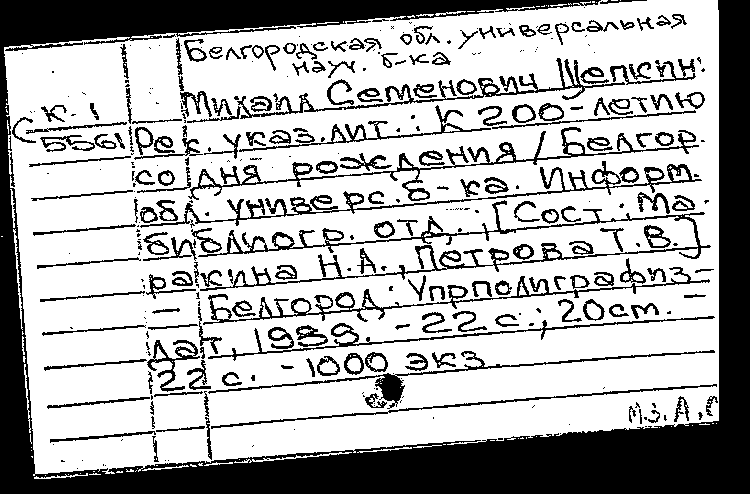 Белгородская обл. универсальная
науч. б-ка
Михаил Семенович Щепкин:
К. 1
С 5561
Рек. указ. лит.: К 200-летию
со дня рождения / Белгор.
обл. универс. б-ка. Информ.
библиогр. отд.; [Сост.: Ма-
ракина Н.А., Петрова Т.В.]
— Белгород: Упрполиграфиз-
дат, 1988. - 22 с.; 20 cm. —
22 с. - 1000 экз.
М.З. А.С